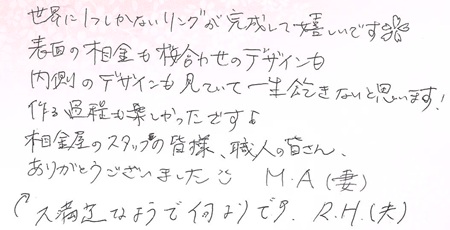 世界に1つしかないリングが完成して嬉しいです
表面の杢金も桜合わせのデザインも
内側のデザインも見ていて一生飽きないと思います!
作る過程も楽しかったです♪
杢金屋のスタッフの皆様、職人の皆さん、
ありがとうございました☺ M.A (妻)
大満足なようで何よりです。R.H.(夫)